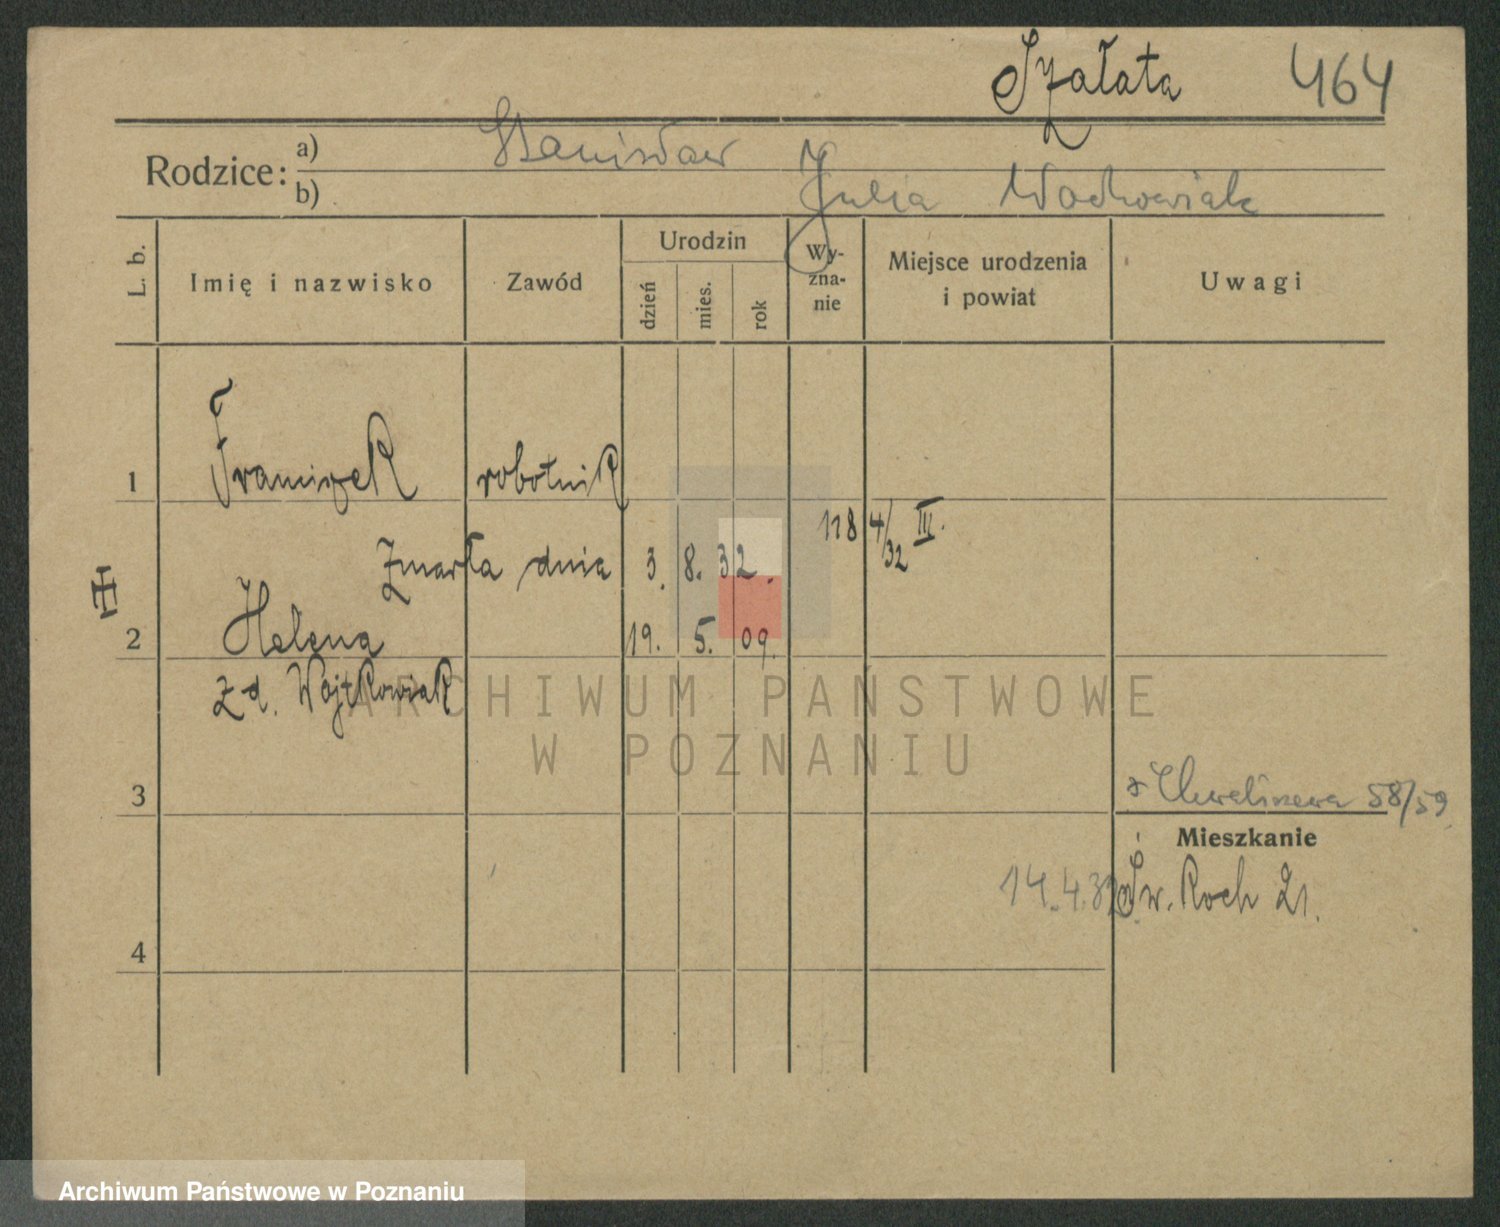 Szałata 464
Rodzice: a) Stanisław
b) Julia Wochowiak
L. b. Imię i nazwisko Zawód Urodzin dzień mies. rok Wy-zna-nie Miejsce urodzenia i powiat Uwagi
1 Franciszek robotnik
118 4/32 III.
Zmarła dnia 3. 8. 32.
2 Helena 19. 5. 09.
z d. Wojtkowiak
ARCHIWUM PAŃSTWOWE
W POZNANIU
3 58/59
Mieszkanie
14.4.32 Św. Roch 21.
4
Archiwum Państwowe w Poznaniu